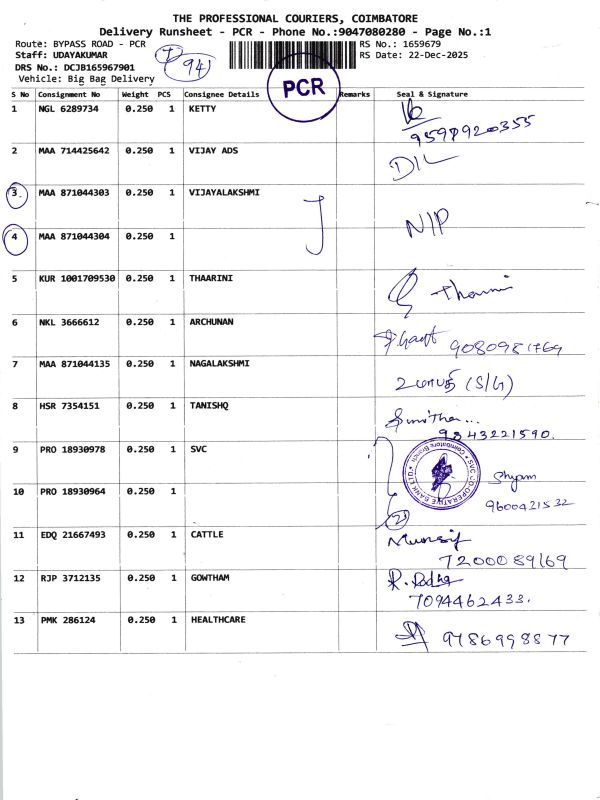 THE PROFESSIONAL COURIERS, COIMBATORE
Delivery Runsheet - PCR - Phone No.:9047080280 - Page No.:1
Route: BYPASS ROAD - PCR
RS No.: 1659679
Staff: UDAYAKUMAR
RS Date: 22-Dec-2025
DRS No.: DCJB165967901
Vehicle: Big Bag Delivery
7
941
PCR
S No Consignment No Weight PCS Consignee Details Remarks Seal & Signature
1 NGL 6289734 0.250 1 KETTY
9598920355
2 MAA 714425642 0.250 1 VIJAY ADS D/L
3 MAA 871044303 0.250 1 VIJAYALAKSHMI
N/P
4 MAA 871044304 0.250 1
5 KUR 1001709530 0.250 1 THAARINI Tharini
6 NKL 3666612 0.250 1 ARCHUNAN
9080981769
7 MAA 871044135 0.250 1 NAGALAKSHMI
உமாபதி (S/G)
8 HSR 7354151 0.250 1 TANISHQ Sunitha...
9843221590.
9 PRO 18930978 0.250 1 SVC
SVC CO-OPERATIVE BANK LTD. Coimbatore Branch
Shyam
10 PRO 18930964 0.250 1 9600421532
2
11 EDQ 21667493 0.250 1 CATTLE Munsif
7200089169
12 RJP 3712135 0.250 1 GOWTHAM R. Radha
7094462433.
13 PMK 286124 0.250 1 HEALTHCARE 9786998877